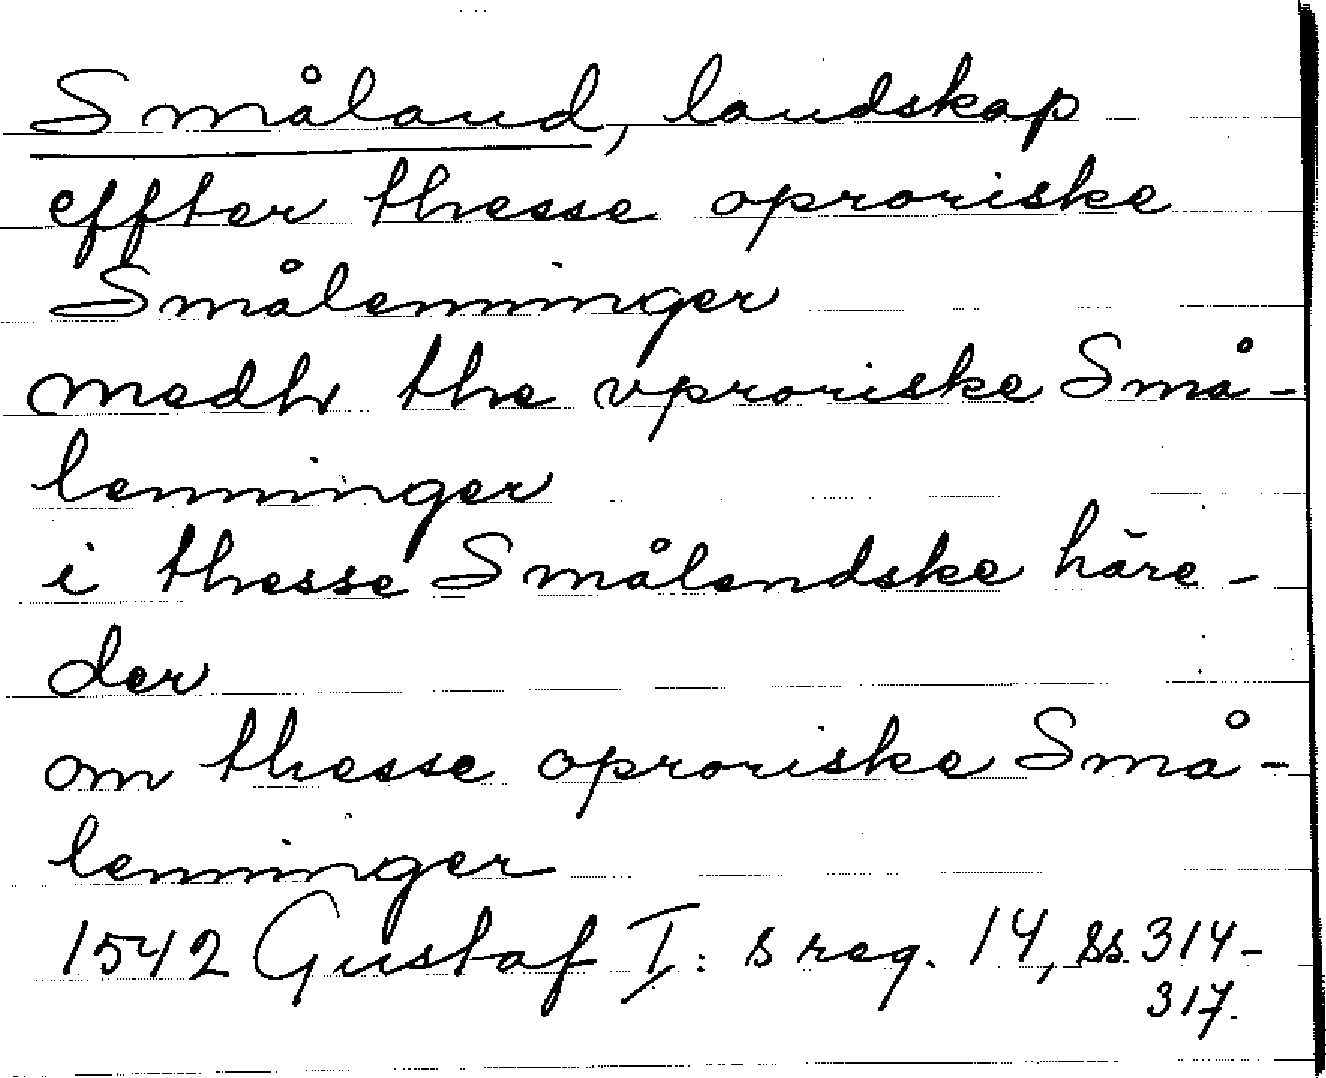 Småland, landskap
effter thesse oproriske
Smålenninger
medh the vproriske Små-
lenninger
i thesse Smålendske häre-
der
om thesse oproriske Små-
lenninger
1542 Gustaf I: s reg. 14, ss. 314-
317.